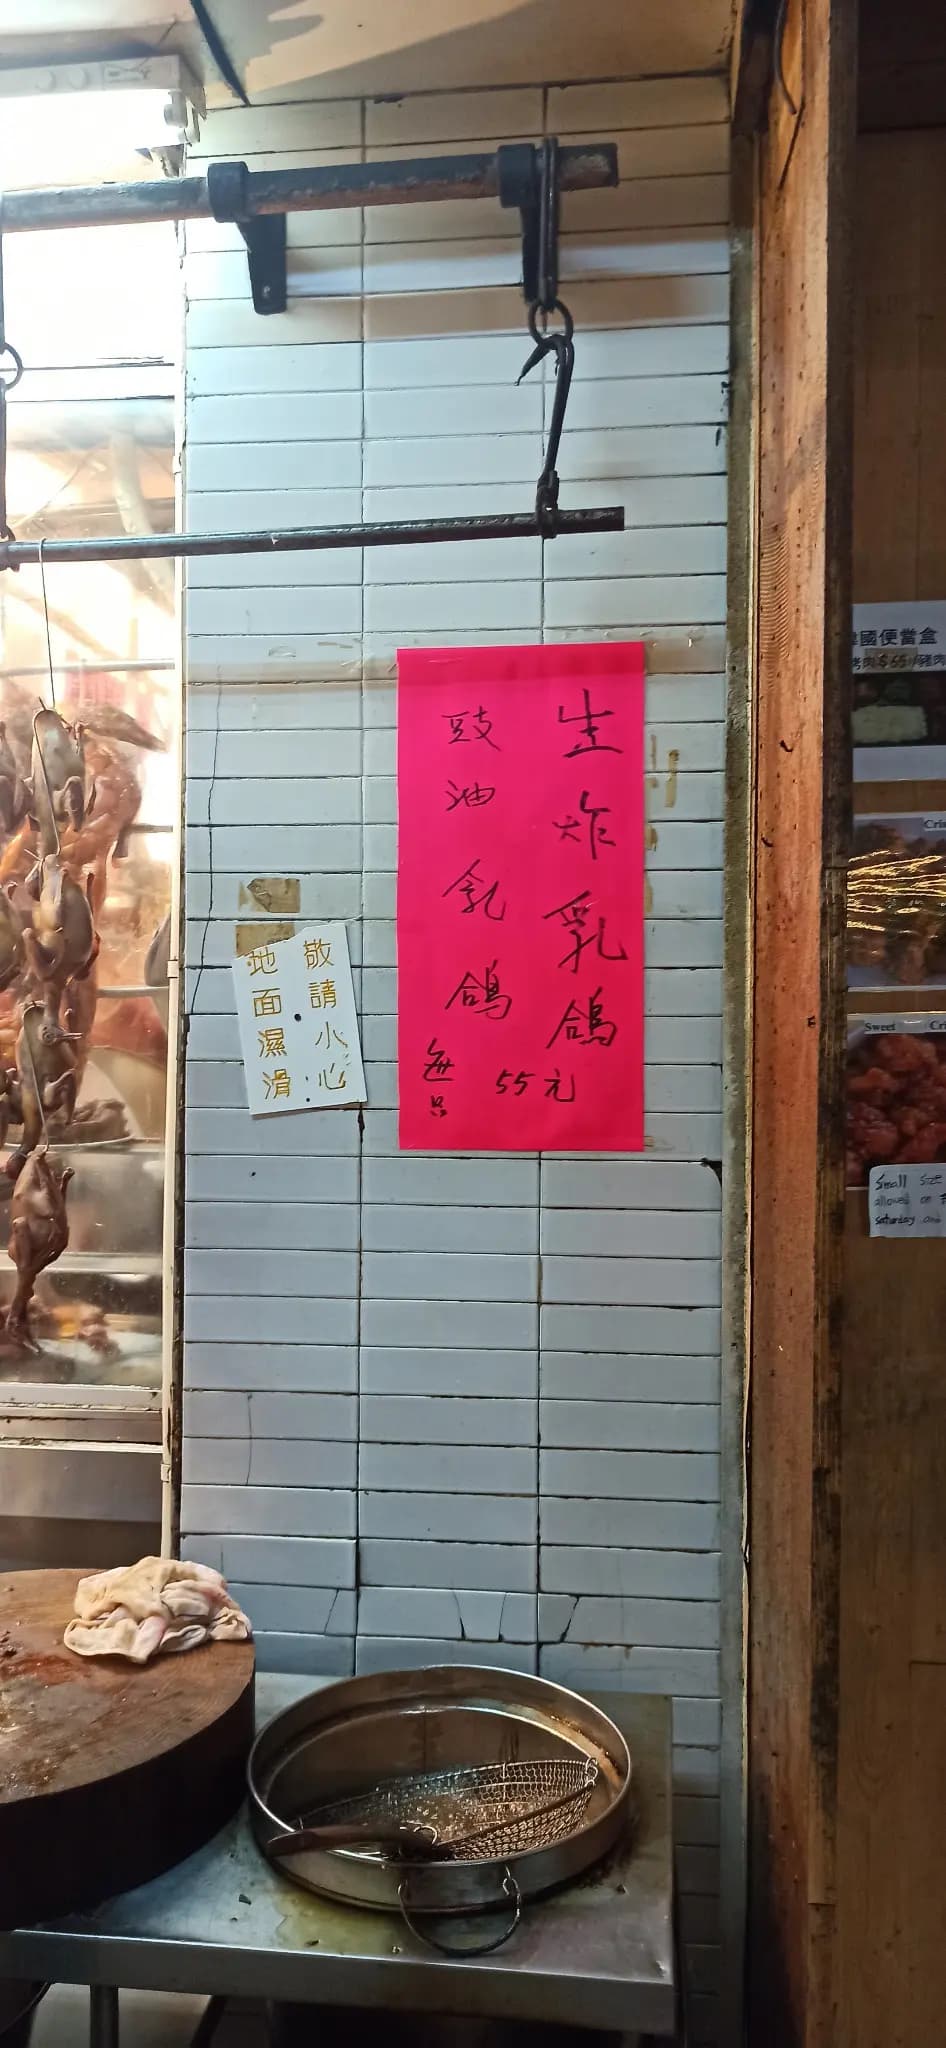 生炸乳鴿
豉油乳鴿
每只 55元
敬請小心
地面濕滑
國便當盒
烤肉$65/豬肉
Cris
Sweet Cri
Small Size
allowed on
saturday and